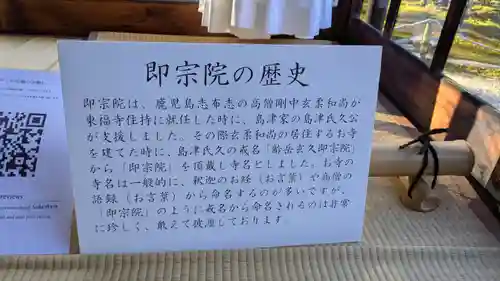 即宗院の歴史
即宗院は、鹿児島志布志の高僧剛中玄柔和尚が
東福寺住持に就任した時に、島津家の島津氏久公
が支援しました。その際玄柔和尚の居住するお寺
を建てた時に、島津氏久の戒名「齢岳玄久即宗院」
から「即宗院」を頂戴し寺名としました。お寺の
寺名は一般的に、釈迦のお経（お言葉）や高僧の
語録（お言葉）から命名するのが多いですが、
「即宗院」のように戒名から命名されるのは非常
に珍しく、敢えて披瀝しております。